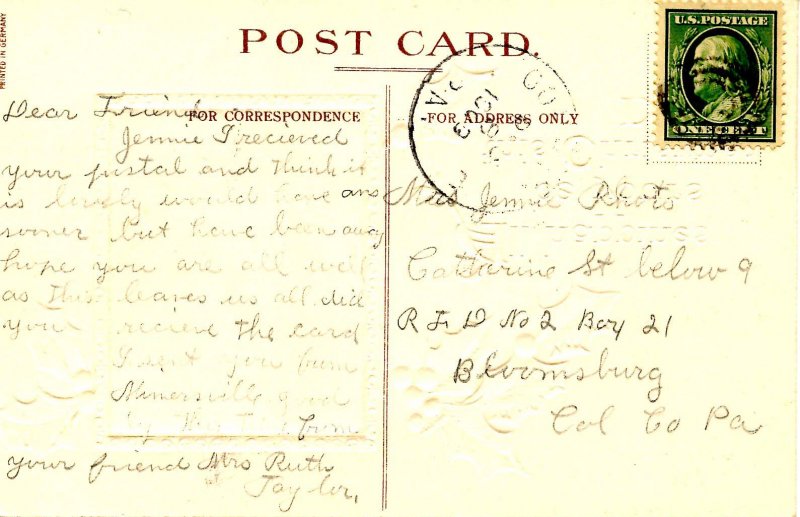 PRINTED IN GERMANY
POST CARD.
U.S. POSTAGE
ONE CENT
FOR CORRESPONDENCE
FOR ADDRESS ONLY
Dear Friend
Jennie I recieved
your postal and think it
is lovely would have ans
sooner but have been away
hope you are all well
as this leaves us all did
you recieve the card
I sent you from
Minersville good
by this time from
your friend Mrs Ruth
Taylor,
Mrs Jennie Rhoto
Catharine St below 9
R F D No 2 Box 21
Bloomsburg
Col Co Pa